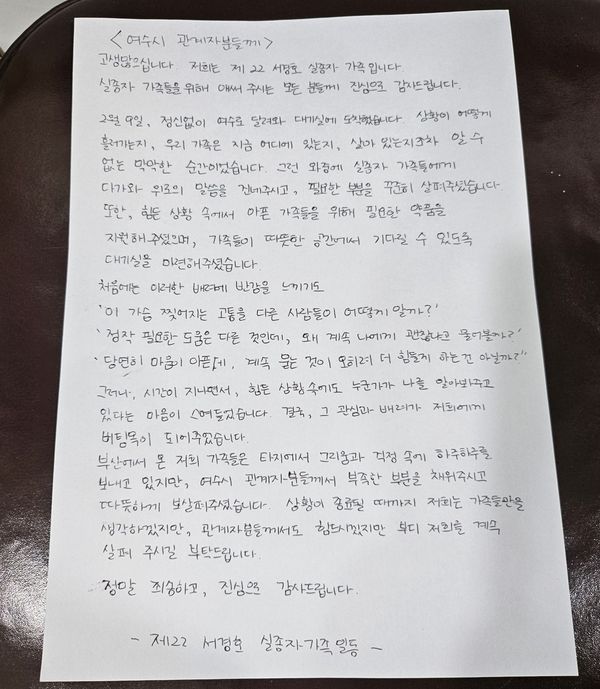 < 여수시 관계자분들께 >
고생많으십니다. 저희는 제22 서경호 실종자 가족입니다.
실종자 가족들을 위해 애써 주시는 모든 분들께 진심으로 감사드립니다.
2월 9일, 정신없이 여수로 달려와 대기실에 도착했습니다. 상황이 어떻게
흘러가는지, 우리 가족은 지금 어디에 있는지, 살아 있는지조차 알 수
없는 막막한 순간이었습니다. 그런 와중에 실종자 가족들에게
다가와 위로의 말씀을 건네주시고, 필요한 부분을 꾸준히 살펴주셨습니다.
또한, 힘든 상황 속에서 아픈 가족들을 위해 필요한 약품을
지원해주셨으며, 가족들이 따뜻한 공간에서 기다릴 수 있도록
대기실을 마련해주셨습니다.
처음에는 이러한 배려에 반감을 느끼기도
'이 가슴 찢어지는 고통을 다른 사람들이 어떻게 알까?'
'정작 필요한 도움은 다른 것인데, 왜 계속 나에게 괜찮냐고 물어볼까?'
'당연히 마음이 아픈데, 계속 묻는 것이 오히려 더 힘들지 하는건 아닐까?'
그러나, 시간이 지나면서, 힘든 상황속에도 누군가가 나를 알아봐주고
있다는 마음이 스며들었습니다. 결국, 그 관심과 배려가 저희에게
버팀목이 되어주었습니다.
부산에서 온 저희 가족들은 타지에서 그리움과 걱정 속에 하루하루를
보내고 있지만, 여수시 관계자분들께서 부족한 부분을 채워주시고
따뜻하게 보살펴주셨습니다. 상황이 종료될 때까지 저희는 가족들만을
생각하겠지만, 관계자분들께서도 힘드시겠지만 부디 저희를 계속
살펴 주시길 부탁드립니다.
정말 죄송하고, 진심으로 감사드립니다.
- 제22 서경호 실종자가족 일동 -